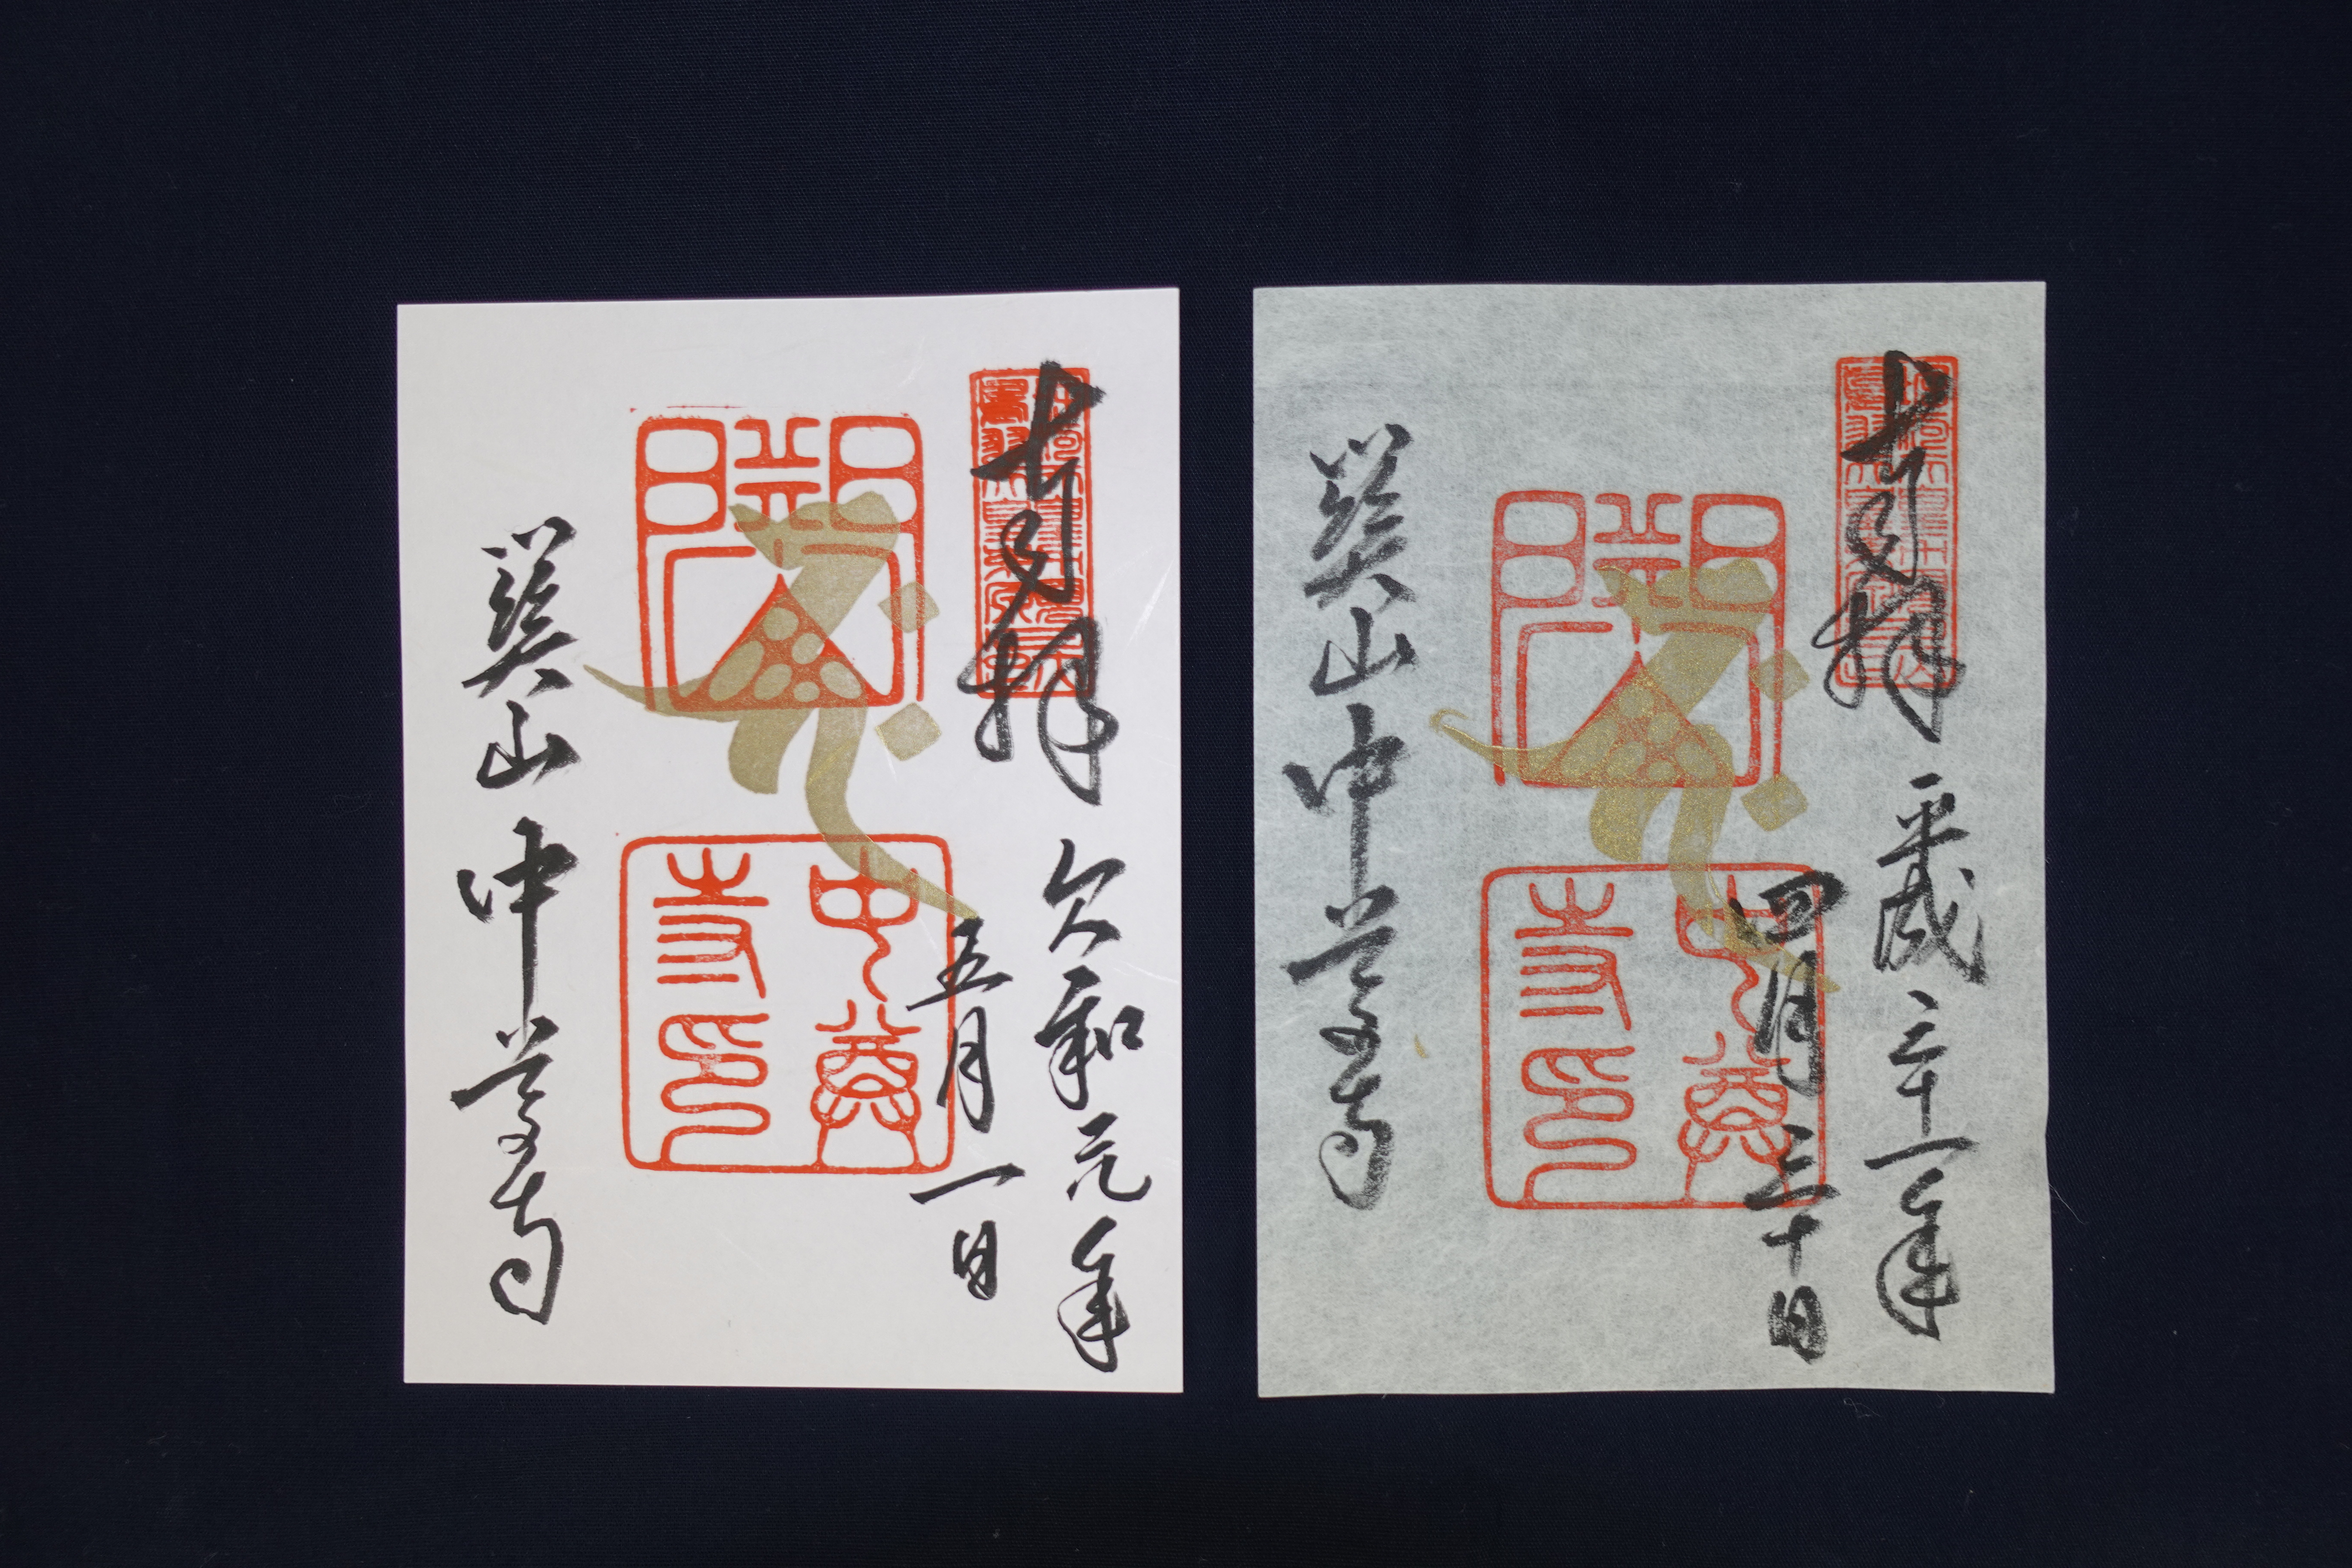 奉拝
平成三十一年
四月三十日
中尊
寺印
關山中尊寺
奉拝
令和元年
五月一日
中尊
寺印
關山中尊寺